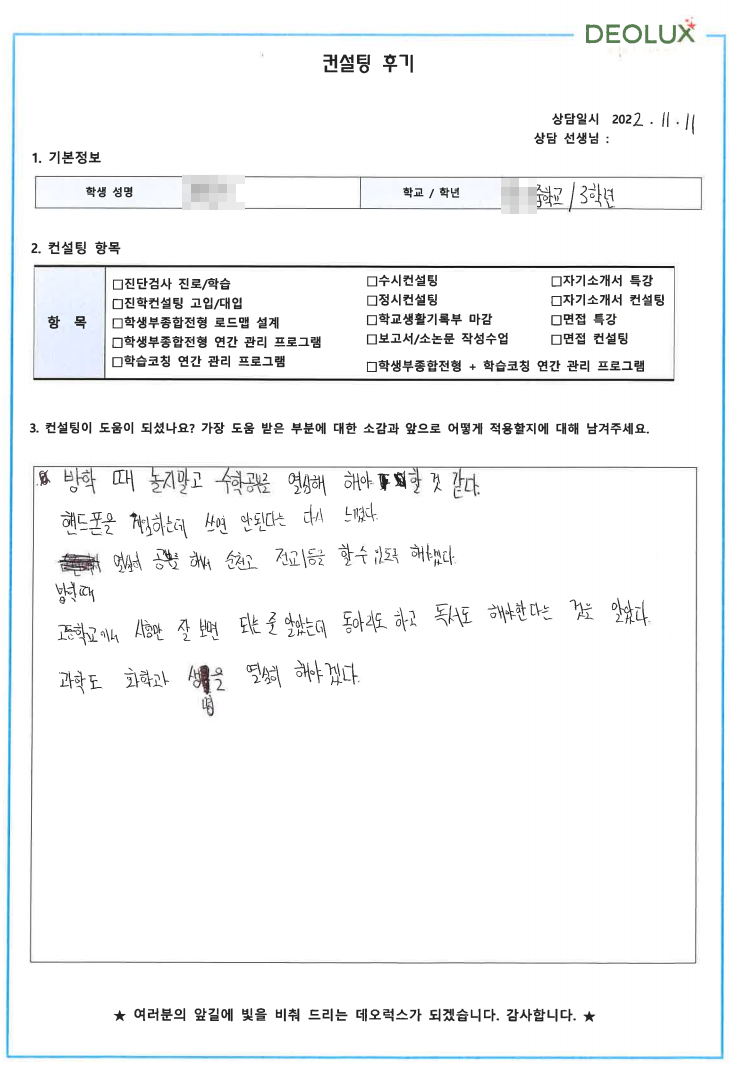 DEOLUX
컨설팅 후기
상담일시 2022. 11. 11
상담 선생님 :
1. 기본정보
학생 성명 학교 / 학년 중학교 / 3학년
2. 컨설팅 항목
항 목
□진단검사 진로/학습 □수시컨설팅 □자기소개서 특강
□진학컨설팅 고입/대입 □정시컨설팅 □자기소개서 컨설팅
□학생부종합전형 로드맵 설계 □학교생활기록부 마감 □면접 특강
□학생부종합전형 연간 관리 프로그램 □보고서/소논문 작성수업 □면접 컨설팅
□학습코칭 연간 관리 프로그램 □학생부종합전형 + 학습코칭 연간 관리 프로그램
3. 컨설팅이 도움이 되셨나요? 가장 도움 받은 부분에 대한 소감과 앞으로 어떻게 적용할지에 대해 남겨주세요.
방학 때 놀지말고 수학공부를 열심해 해야 할 것 같다.
핸드폰을 게임하는데 쓰면 안된다는 다시 느꼈다.
열심히 공부를 해서 순천고 전교1등급 할 수 있도록 해야겠다.
방학때
고등학교에서 시험만 잘 보면 되는 줄 알았는데 동아리도 하고 독서도 해야한다는 것을 알았다.
과학도 화학과 생명을 열심히 해야겠다.
★ 여러분의 앞길에 빛을 비춰 드리는 데오럭스가 되겠습니다. 감사합니다. ★